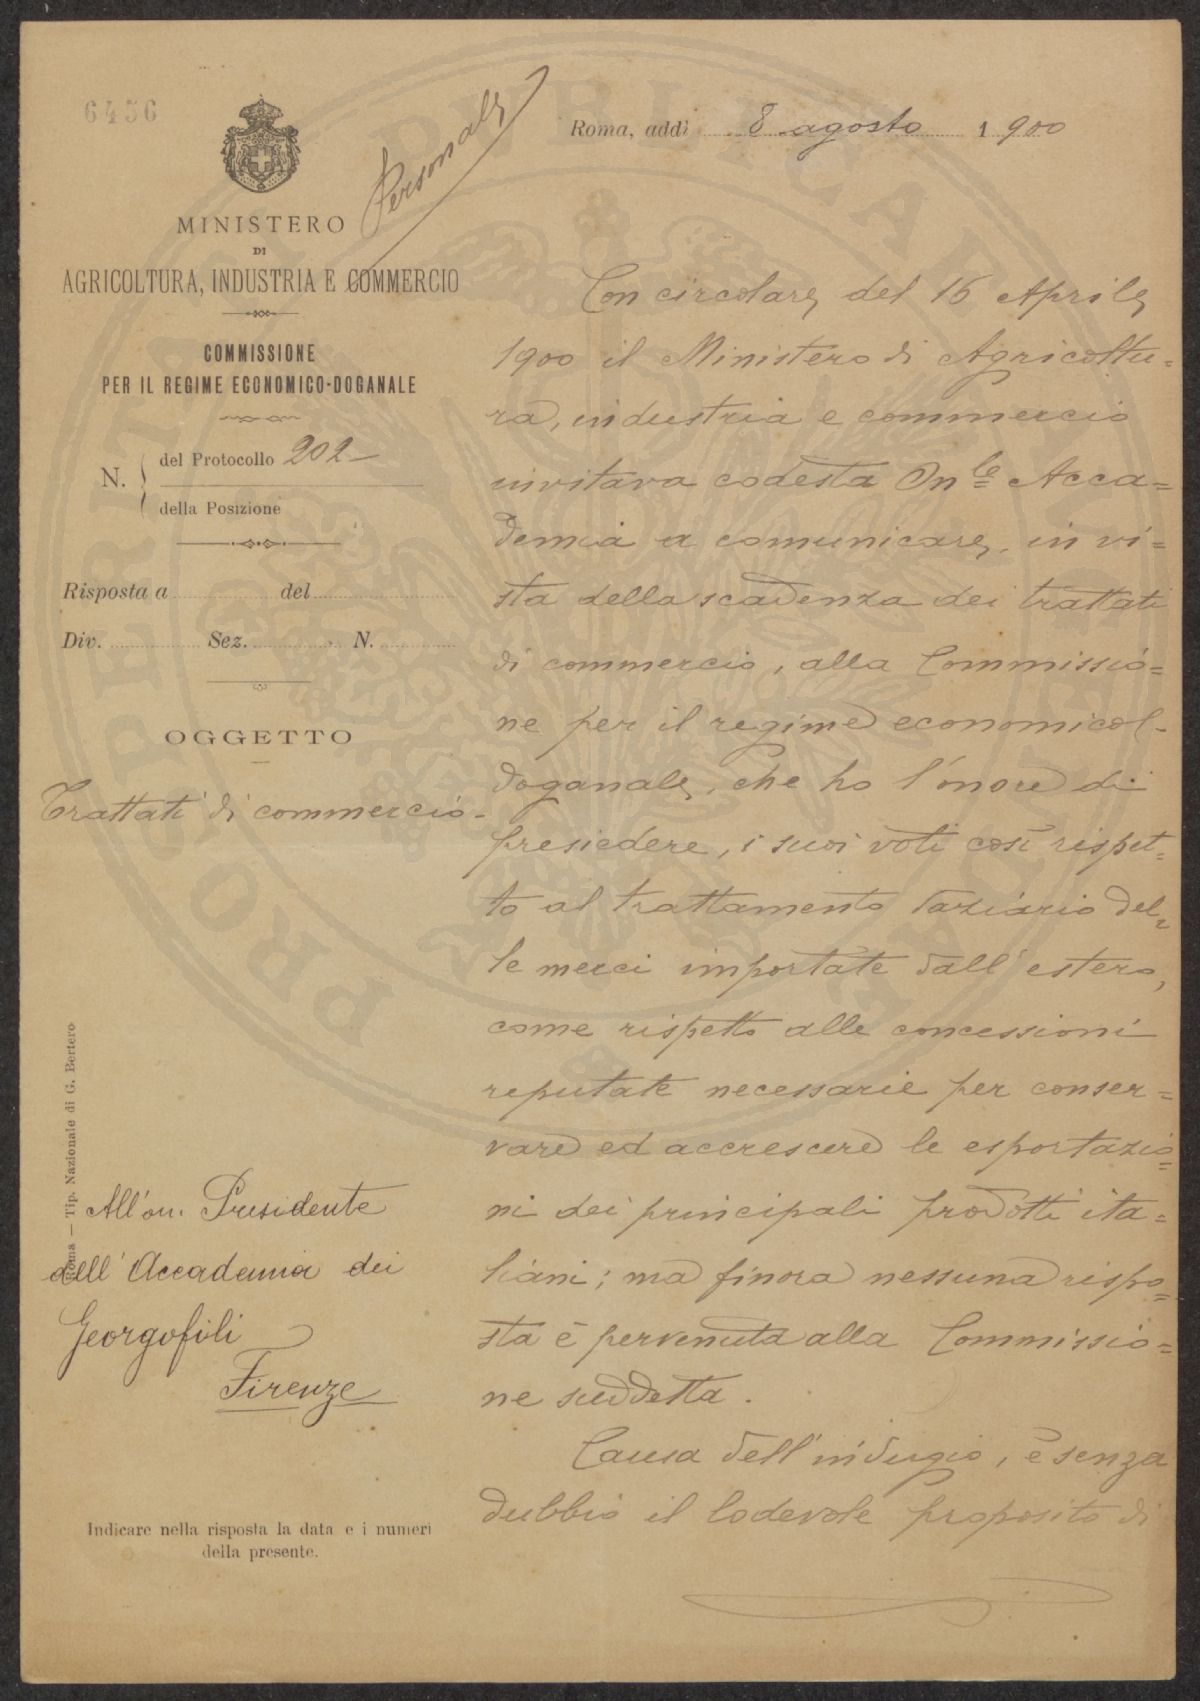 6456
Personale
Roma, addì 8 agosto 1900
MINISTERO
DI
AGRICOLTURA, INDUSTRIA E COMMERCIO
COMMISSIONE
PER IL REGIME ECONOMICO-DOGANALE
N. del Protocollo 202
della Posizione
Risposta a del
Div. Sez. N.
OGGETTO
Trattati di commercio.
Roma — Tip. Nazionale di G. Bertero
All'on. Presidente
dell'Accademia dei
Georgofili
Firenze
Indicare nella risposta la data e i numeri
della presente.
Con circolare del 16 Aprile
1900 il Ministero di Agricoltu=
ra, industria e commercio
invitava codesta On.le Acca=
demia a comunicare, in vi=
sta della scadenza dei trattati
di commercio, alla Commissio=
ne per il regime economico-
doganale, che ho l'onore di
presiedere, i suoi voti così rispet=
to al trattamento daziario del=
le merci importate dall'estero,
come rispetto alle concessioni
reputate necessarie per conser=
vare ed accrescere le esportazio=
ni dei principali prodotti ita=
liani; ma finora nessuna rispo=
sta è pervenuta alla Commissio=
ne suddetta.
Causa dell'indugio, è senza
dubbio il lodevole proposito di
PROSPERITATI PUBLICAE AUGENDAE